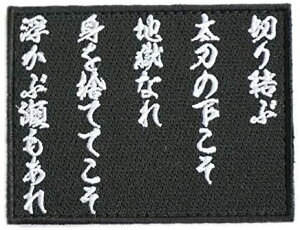 切り結ぶ
太刀の下こそ
地獄なれ
身を捨ててこそ
浮かぶ瀬もあれ